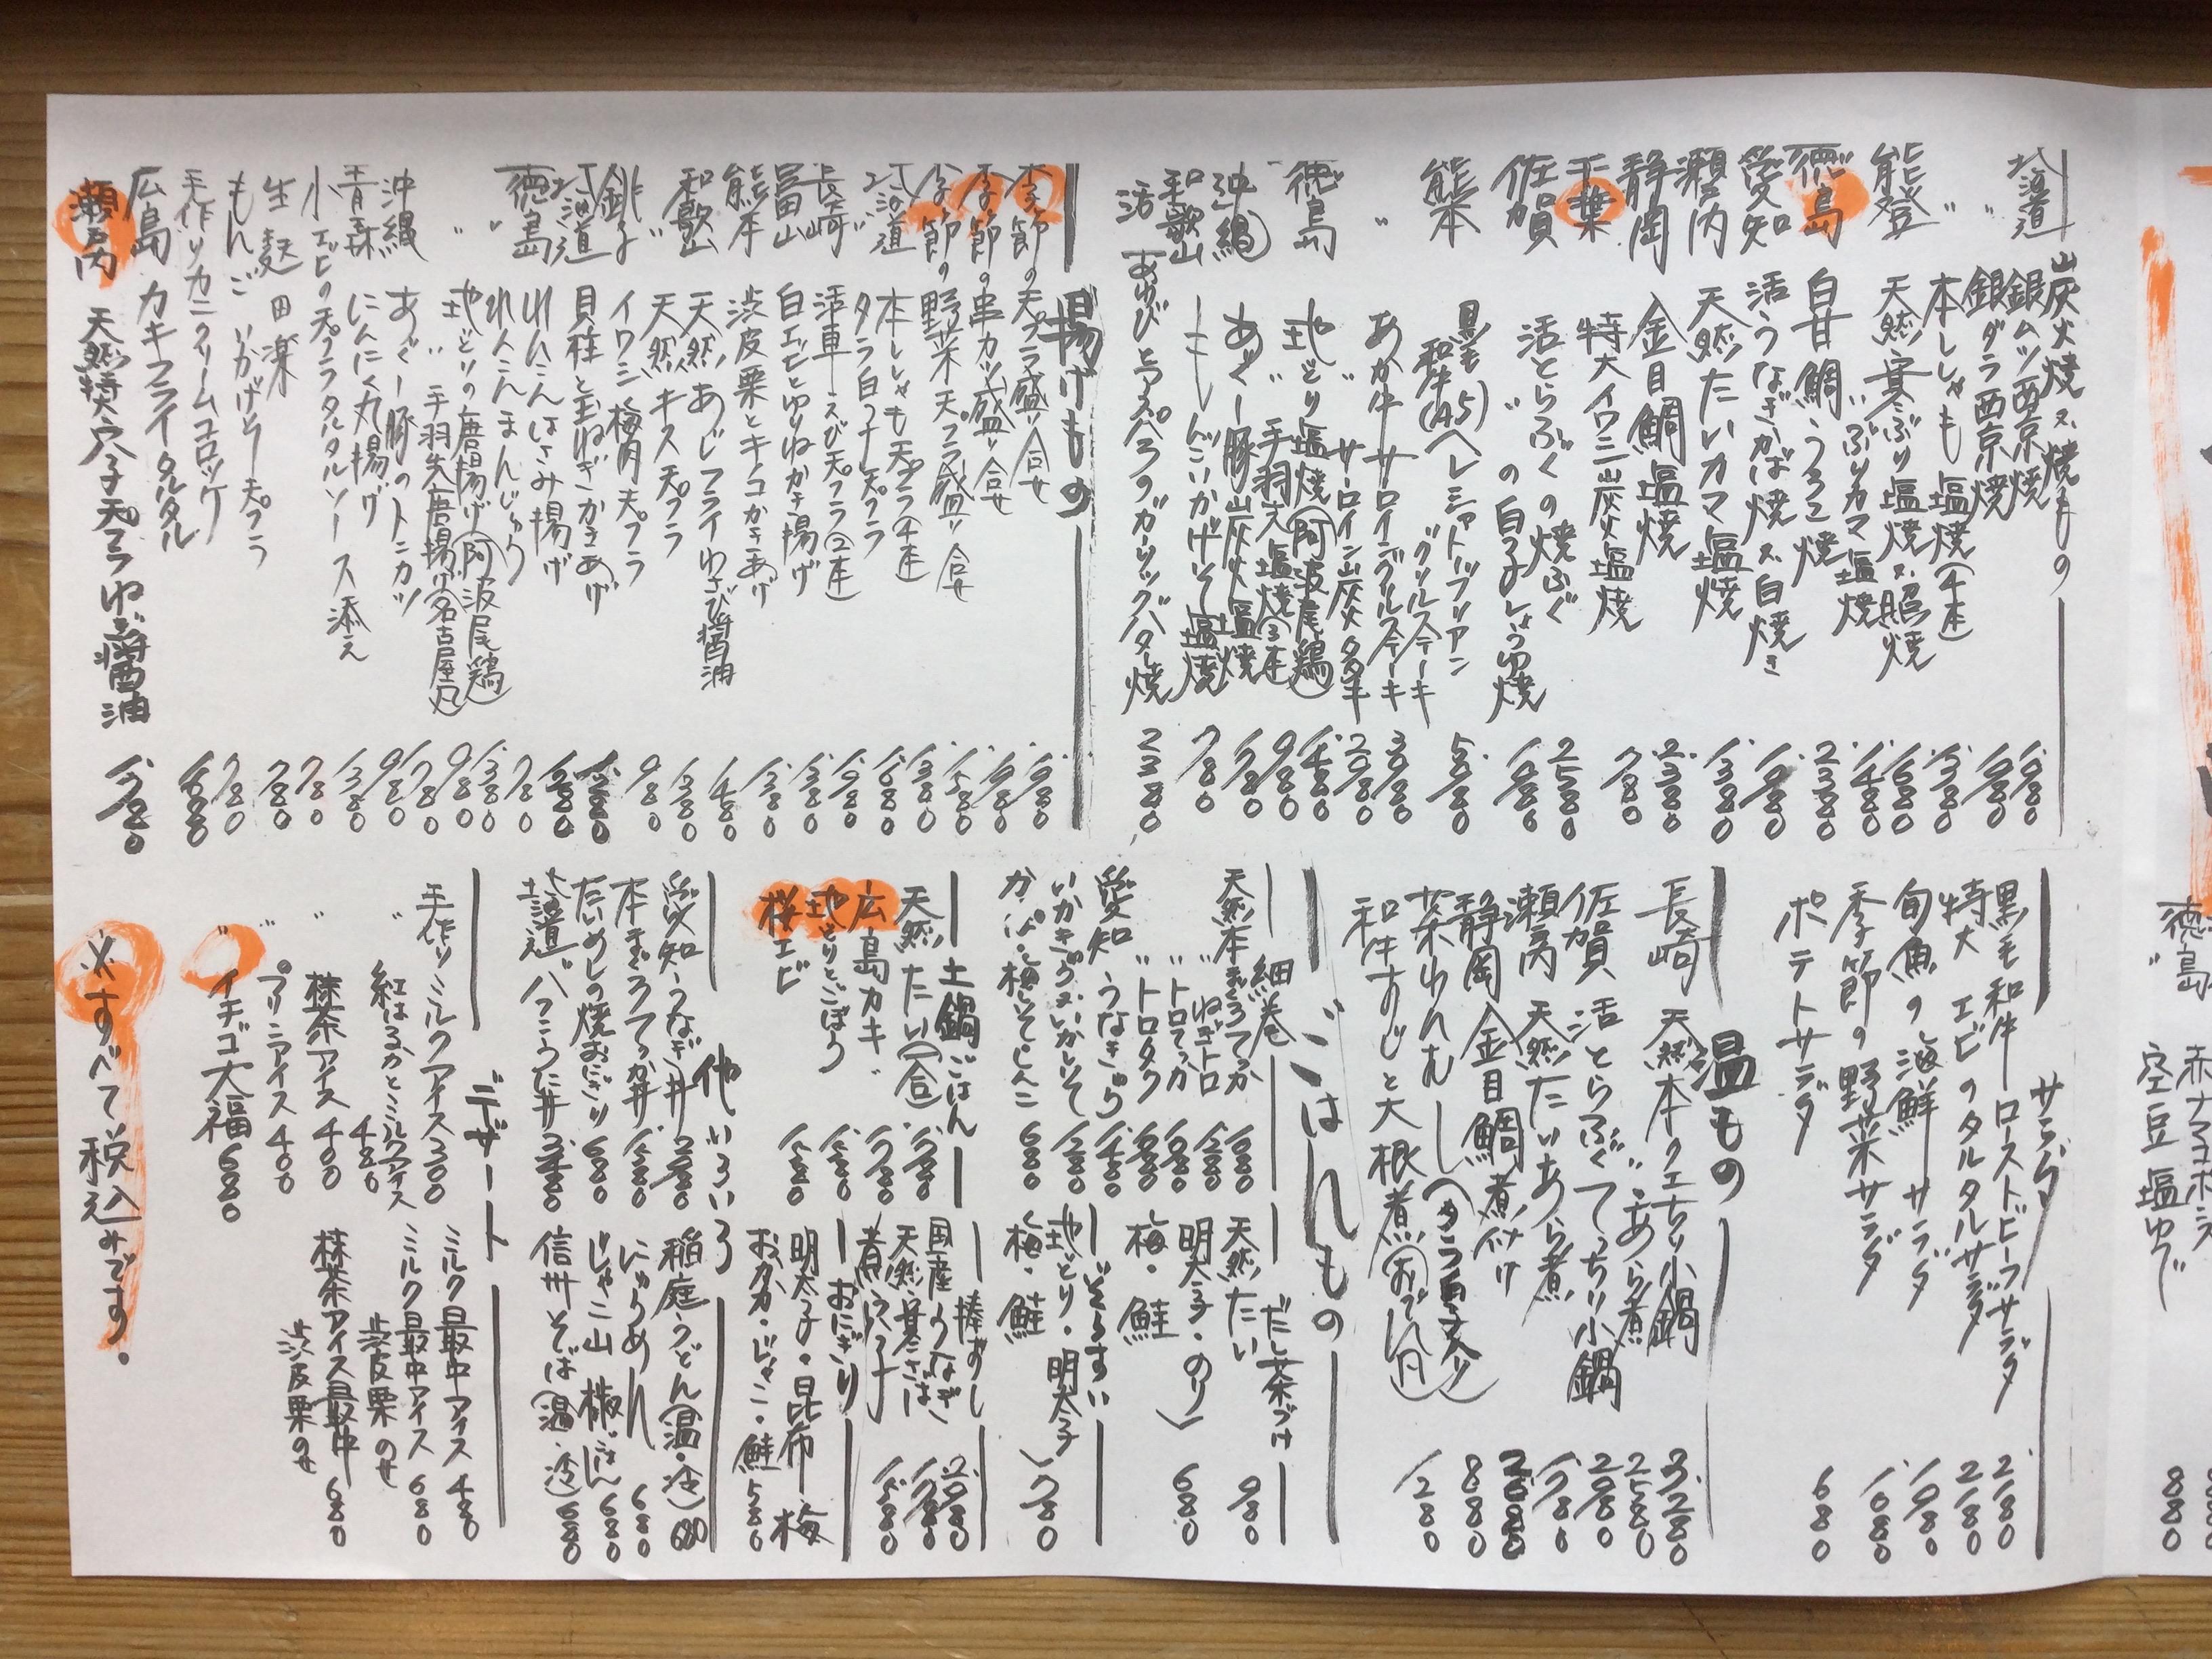 炭火焼又焼もの
北海道 銀ムツ西京焼 1,980
〃 銀ダラ西京焼 1,980
〃 本ししゃも塩焼(4本) 1,380
能登 天然寒ぶり塩焼又照焼 1,680
〃 ぶりカマ塩焼 1,480
徳島 白甘鯛うろこ焼 2,380
愛知 活うなぎかば焼又白焼き
瀬戸内 天然たいカマ塩焼 1,380
静岡 金目鯛塩焼 2,380
千葉 特大イワシ炭火塩焼 780
佐賀 活とらふぐの焼ふぐ 2,580
〃 の白子しょうゆ焼
熊本 黒毛和牛(A5)ヘレシャトーブリアン
グリルステーキ 5,180
あか牛サーロイングリルステーキ
〃 サーロイン炭火タタキ
徳島 地どり塩焼(阿波尾鶏) 1,480
〃 手羽先塩焼(3本) 980
沖縄 あぐー豚炭火塩焼 1,780
和歌山 しんこいかげそ塩焼 780
活あわびとアスパラのガーリックバター焼 2,380
揚げもの
季節の天プラ盛り合せ 1,980
季節の串カツ盛り合せ 1,980
季節の野菜天プラ盛り合せ 1,580
北海道 本ししゃも天プラ(4本) 1,380
〃 タラ白子天プラ 1,680
長崎 活車えび天プラ(2本) 1,980
富山 白エビとゆりねかき揚げ 1,380
熊本 渋皮栗とキノコかきあげ 1,380
和歌山 天然あじフライわさび醤油 1,480
〃 天然キス天プラ 1,380
銚子 イワシ梅肉天プラ 980
北海道 貝柱と玉ねぎかきあげ 1,280
徳島 れんこんはさみ揚げ
〃 れんこんまんじゅう 780
地どりの唐揚げ(阿波尾鶏) 1,380
〃 手羽先唐揚げ(名古屋風) 980
沖縄 あぐー豚のトンカツ 1,780
青森 にんにく丸揚げ 980
小エビの天プラタルタルソース添え 1,380
生麩田楽 780
もんごいかげそ天プラ 780
手作りカニクリームコロッケ 780
広島 カキフライタルタル 1,680
瀬戸内 天然特大穴子天プラわさび醤油 1,780
サラダ
黒毛和牛ローストビーフサラダ 2,180
特大エビのタルタルサラダ 2,180
旬魚の海鮮サラダ 1,980
季節の野菜サラダ 1,080
ポテトサラダ 680
温もの
長崎 天然本クエちり小鍋 3,280
〃 あら煮 2,580
佐賀 活とらふぐてっちり小鍋 2,980
瀬戸内 天然たいあら煮 1,780
静岡 金目鯛煮付け
茶わんむし(タラ白子入り) 880
和牛すじと大根煮(おでん風) 1,280
ごはんもの
細巻
天然本まぐろてっか 1,680
〃 ねぎトロ 1,280
〃 トロてっか
〃 トロタク
愛知 うなきゅう 1,480
いかきゅう又いかしそ 1,280
かっぱ・梅しそしんこ 680
だし茶づけ
天然たい 980
明太子・のり
梅・鮭 680
ぞうすい
地とり・明太子
梅・鮭 780
土鍋ごはん
天然たい(一合) 1,780
広島カキ 1,780
地どりとごぼう 1,580
桜エビ 1,580
棒すし
国産うなぎ 2,980
天然寒さば 1,780
煮穴子 1,580
おにぎり
明太子・昆布・梅
おかか・じゃこ・鮭 580
他いろいろ
愛知 うなぎ丼
本まぐろてっか丼
たいめしの焼おにぎり 680
北海道 バフンうに丼
稲庭うどん(温・冷) 680
にゅうめん 680
じゃこ山椒ごはん 680
信州そば(温・冷) 680
デザート
手作りミルクアイス 300
〃 紅はるかとミルクアイス 480
〃 抹茶アイス 400
プリンアイス 400
〃 イチゴ大福 680
ミルク最中アイス 480
ミルク最中アイス
渋皮栗のせ 680
抹茶アイス最中
渋皮栗のせ 680
※すべて税込みです。
徳島
〃 空豆塩ゆで 880